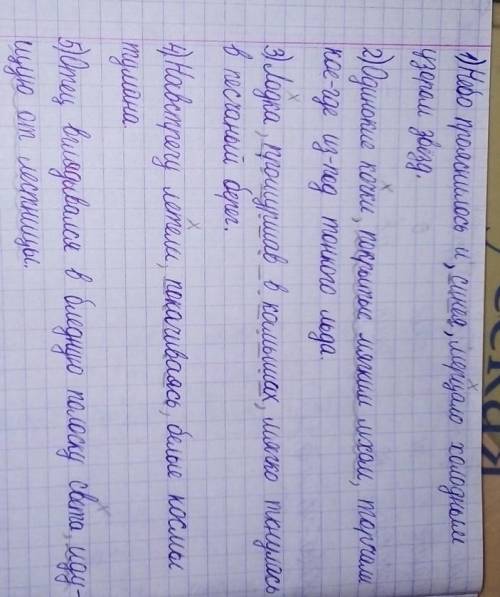 1) Небо прояснилось и, синея, мерцало холодными
узорами звёзд.
2) Одинокие кочки, покрытые мягким мхом, торчали
кое-где из-под тонкого льда.
3) Лодка, прошуршав в камышах, мягко ткнулась
в песчаный берег.
4) Навстречу летели, покачиваясь, белые космы
тумана.
5) Отец вглядывался в бледную полоску света, иду-
щую от лестницы.